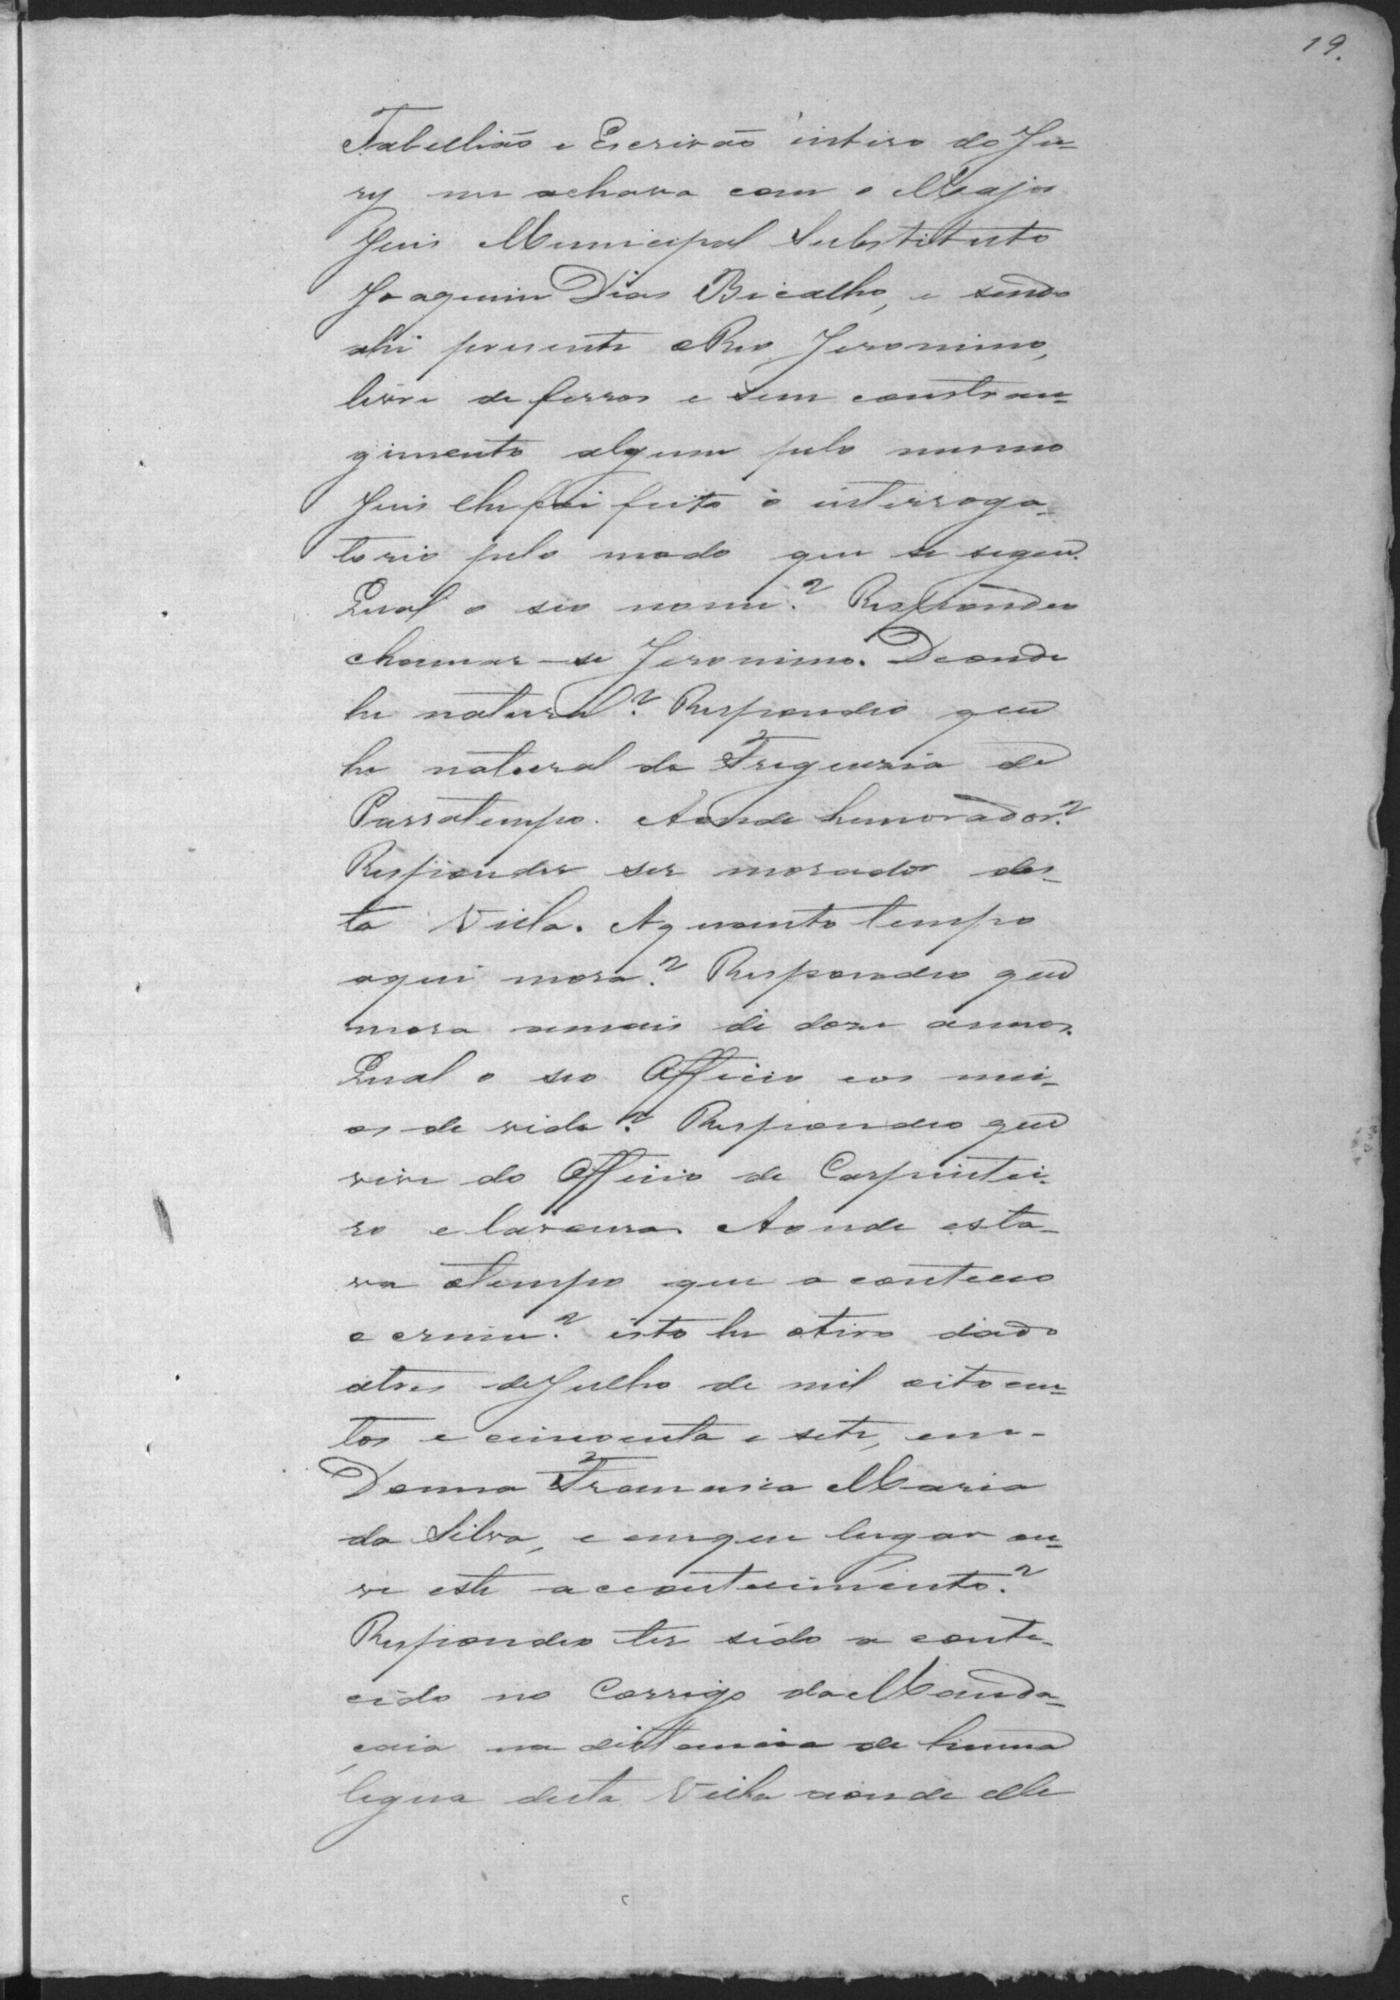 19.
Tabellião e Escrivão intiro do Ju-
ry me achava com o Major
Juis Municipal Substituto
Joaquim Dias Bicalho, e sendo
ahi presente o Reo Jeronimo,
livre de ferros e sem constran-
gimento algum pelo mesmo
Juis lhe foi feito o interroga-
torio pelo modo que se segue.
Qual o seo nome? Respondeo
chamar-se Jeronimo. Deonde
he natural? Respondeo que
he natural da Freguezia de
Passatempo. Aonde he morador?
Respondeo ser morador des-
ta Villa. Aquanto tempo
aqui mora? Respondeo que
mora amais de doze annos.
Qual o seo Officio eos mei-
os de vida? Respondeo que
vive do Officio de Carpintei-
ro e lavoura. Aonde esta-
va otempo que aconteceo
o crime? isto he otiro dado
atres de Julho de mil oitocen-
tos e cincoenta e sete, em
Donna Francisca Maria
da Silva, e emque lugar ou-
ve este acontecimento?
Respondeo ter sido aconte-
cido no Corrigo da Manda-
caia na distancia de huma
legua desta Villa aonde elle